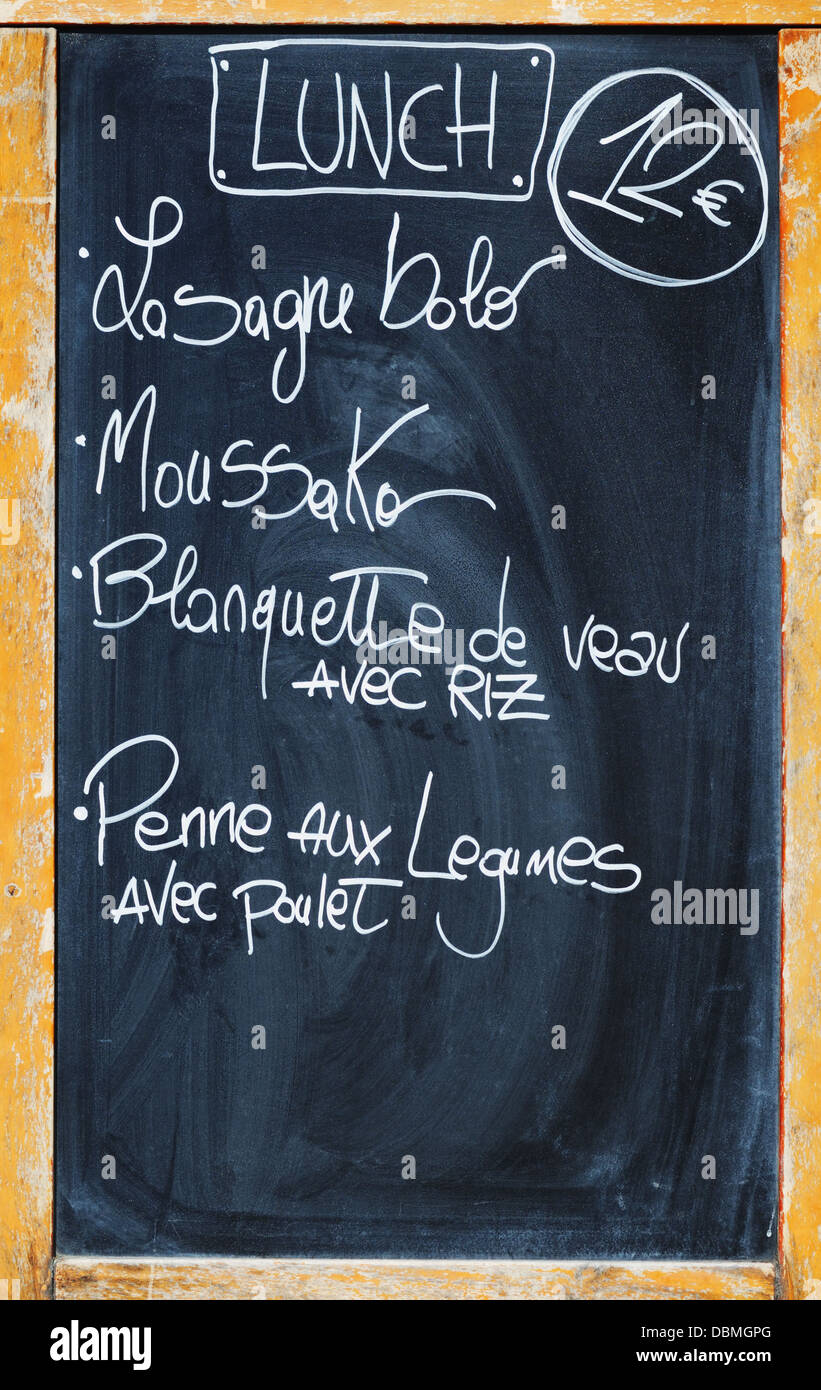 LUNCH 12€
· Lasagne bolo
· Moussaka
· Blanquette de veau
avec RIZ
· Penne aux Legumes
avec poulet
alamy
Image ID: DBMGPG
www.alamy.com